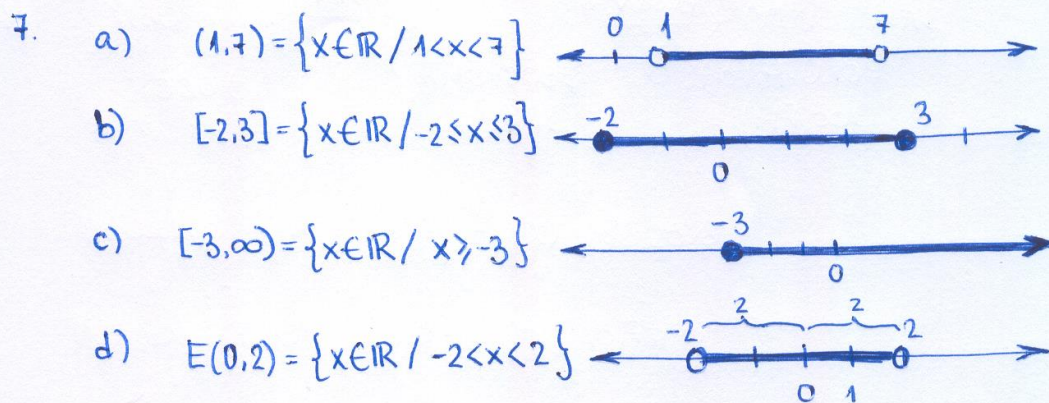 7. a) (1,7) = {x∈ℝ / 1<x<7} 0 1 7
b) [-2,3] = {x∈ℝ / -2≤x≤3} -2 3
0
c) [-3,∞) = {x∈ℝ / x≥-3} -3
0
2 2
d) E(0,2) = {x∈ℝ / -2<x<2} -2 2
0 1